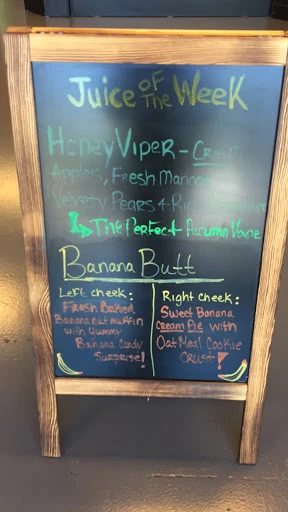 Juice OF The Week
Honey Viper - Crisp
Apples, Fresh Mango
Velvety Pears & Rich
The Perfect Autumn Vape
Banana Butt
Left cheek:
Fresh Baked
Banana nut muffin
with Yummy
Banana Candy
Surprise!
Right cheek:
Sweet Banana
Cream Pie with
Oat Meal Cookie
Crust!